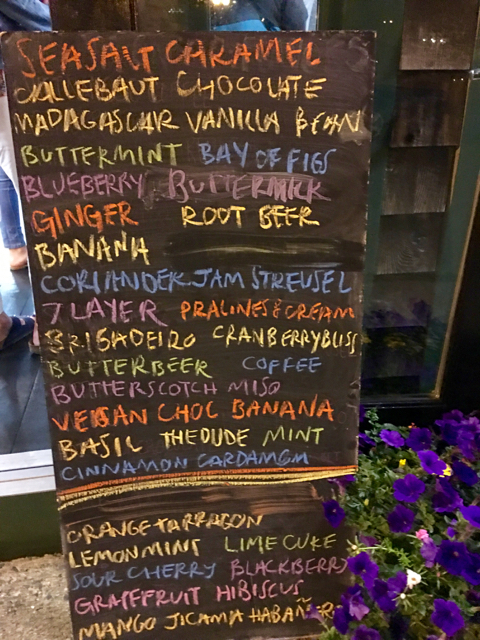 SEASALT CARAMEL
CALLEBAUT CHOCOLATE
MADAGASCAR VANILLA BEAN
BUTTERMINT BAY OF FIGS
BLUEBERRY BUTTERMILK
GINGER ROOT BEER
BANANA
CORIANDER JAM STREUSEL
7 LAYER PRALINES & CREAM
BRIGADEIRO CRANBERRY BLISS
BUTTERBEER COFFEE
BUTTERSCOTCH MISO
VEGAN CHOC BANANA
BASIL THE DUDE MINT
CINNAMON CARDAMOM
ORANGE TARRAGON
LEMON MINT LIME CUKE
SOUR CHERRY BLACKBERRY
GRAPEFRUIT HIBISCUS
MANGO JICAMA HABAÑER